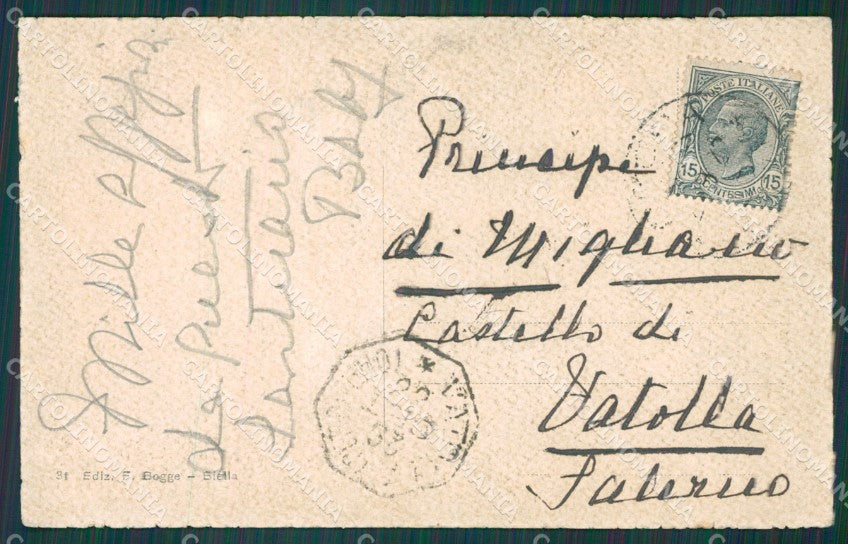 Mille
da questo
Santuario
Baby
Principe
di Migliano
Castello di
Vatolla
Salerno
POSTE ITALIANE
15 CENTESIMI 15
31 Ediz. F. Bogge - Biella
CARTOLINOMANIA